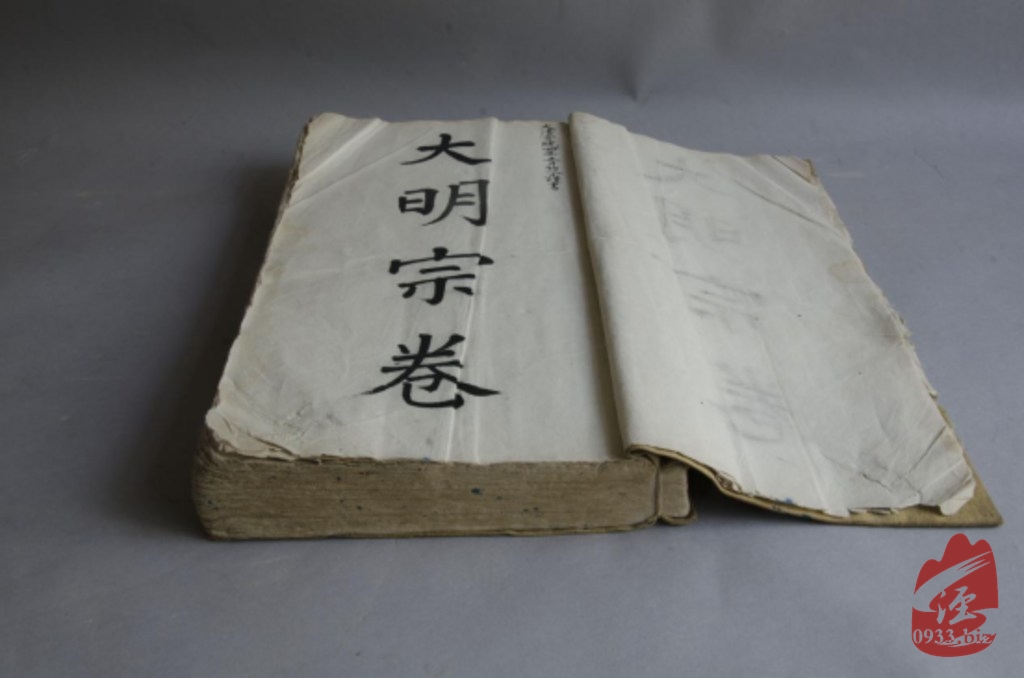 大明宗卷
泾
0933.biz